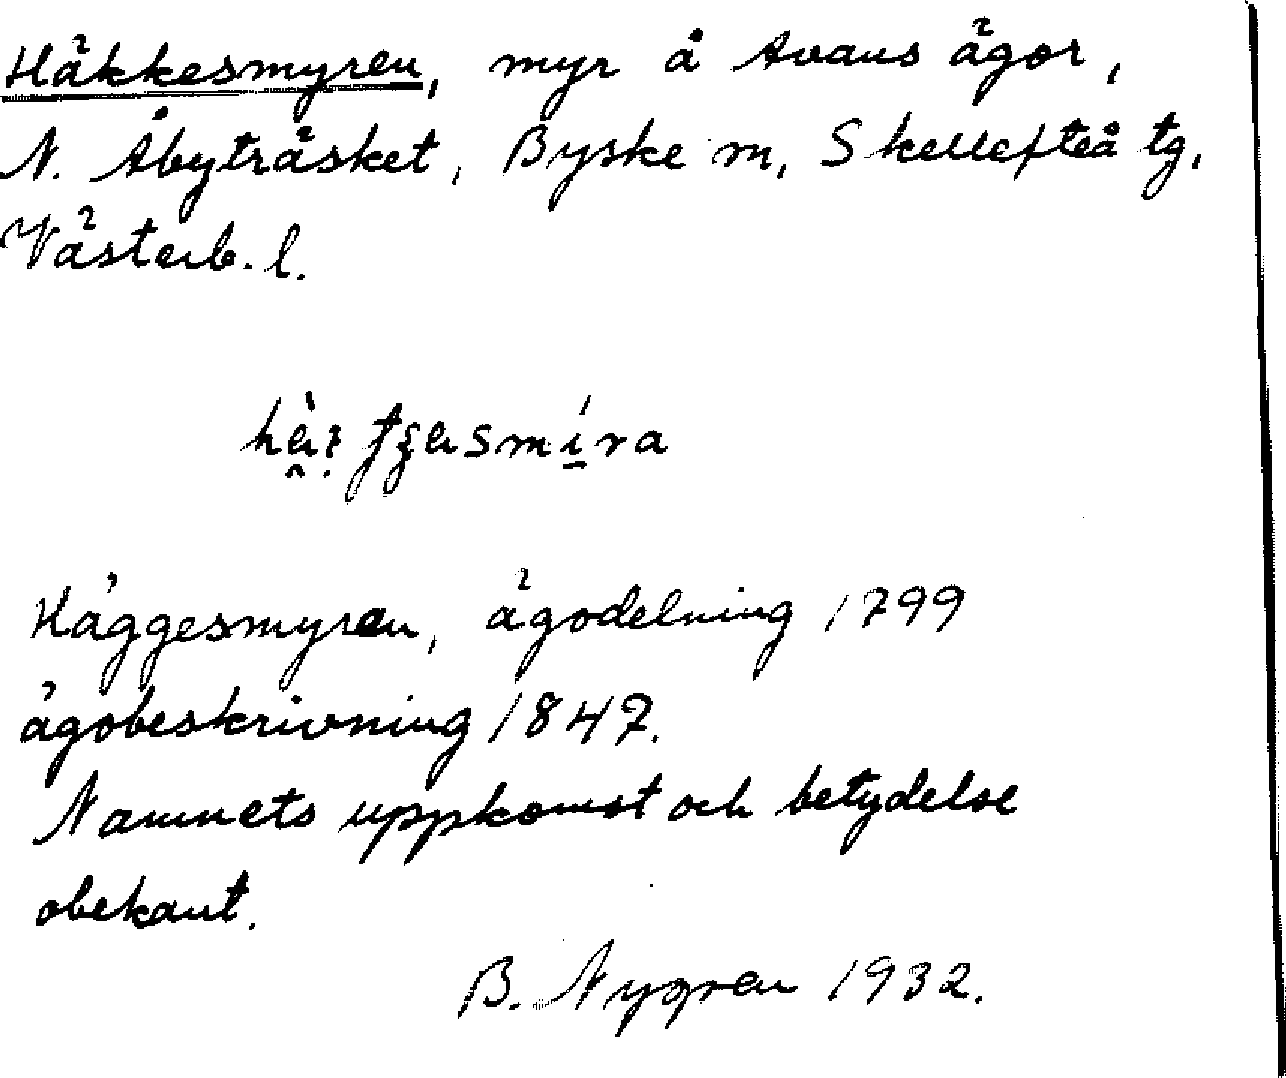 Häkkesmyren, myr å Avans ägor,
N. Åbyträsket, Byske sn, Skellefteå tg,
Västerb. l.
Häggesmyren, ägodelning 1799
ägobeskrivning 1847.
Namnets uppkomst och betydelse
obekant.
B. Nygren 1932.